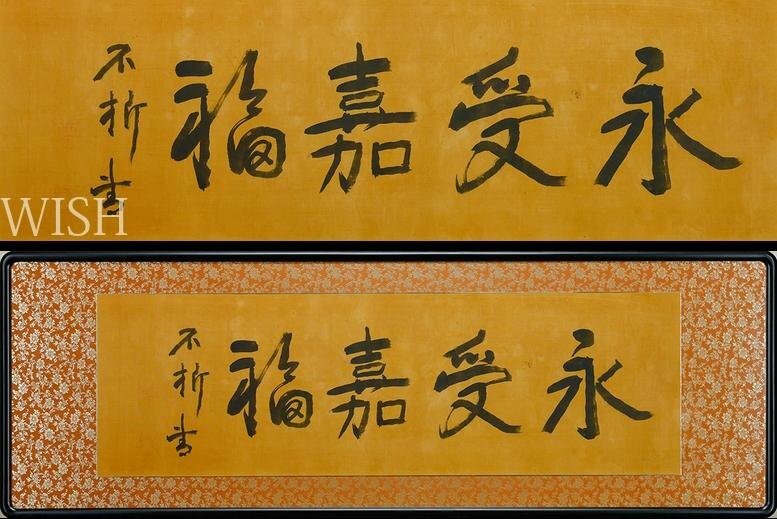 永受嘉福
不折書
WISH
永受嘉福
不折書